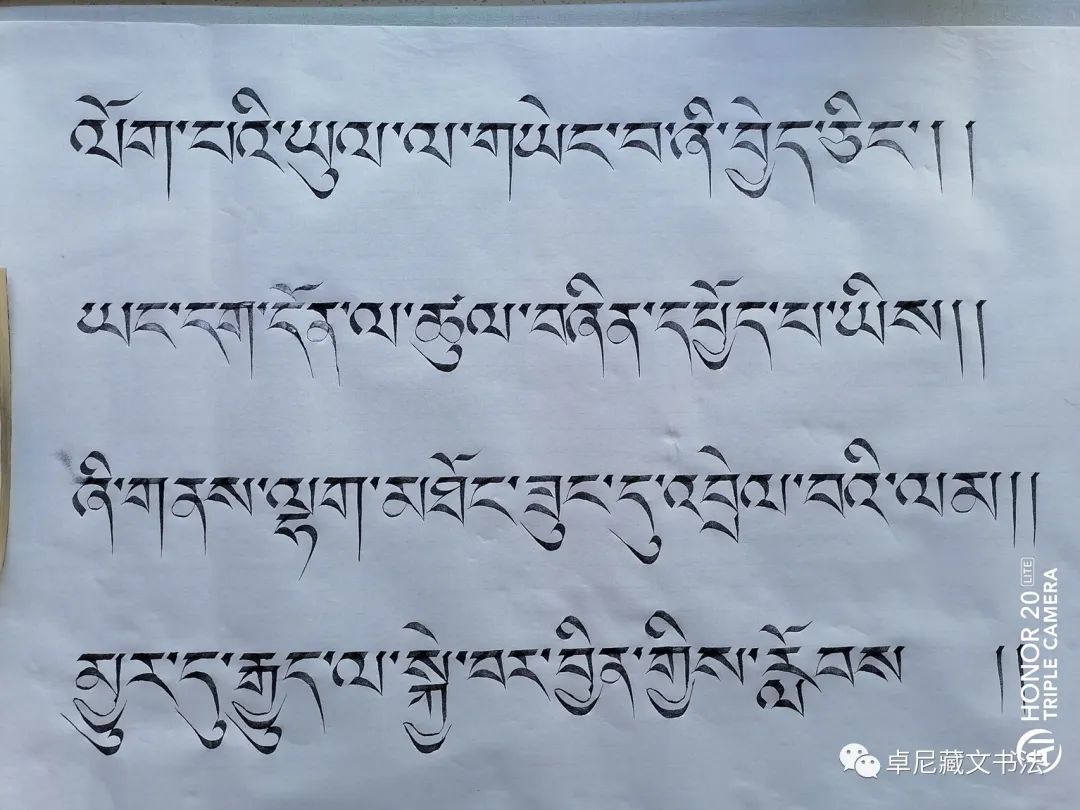 ལོག་པའི་ཡུལ་ལ་གཡེང་བ་ཞི་བྱེད་ཅིང་།།
ཡང་དག་དོན་ལ་ཚུལ་བཞིན་དཔྱོད་པ་ཡིས།།
ཞི་གནས་ལྷག་མཐོང་ཟུང་དུ་འབྲེལ་བའི་ལམ།།
མྱུར་དུ་རྒྱུད་ལ་སྐྱེ་བར་བྱིན་གྱིས་རློབས །།
HONOR 20 LITE
TRIPLE CAMERA
卓尼藏文书法